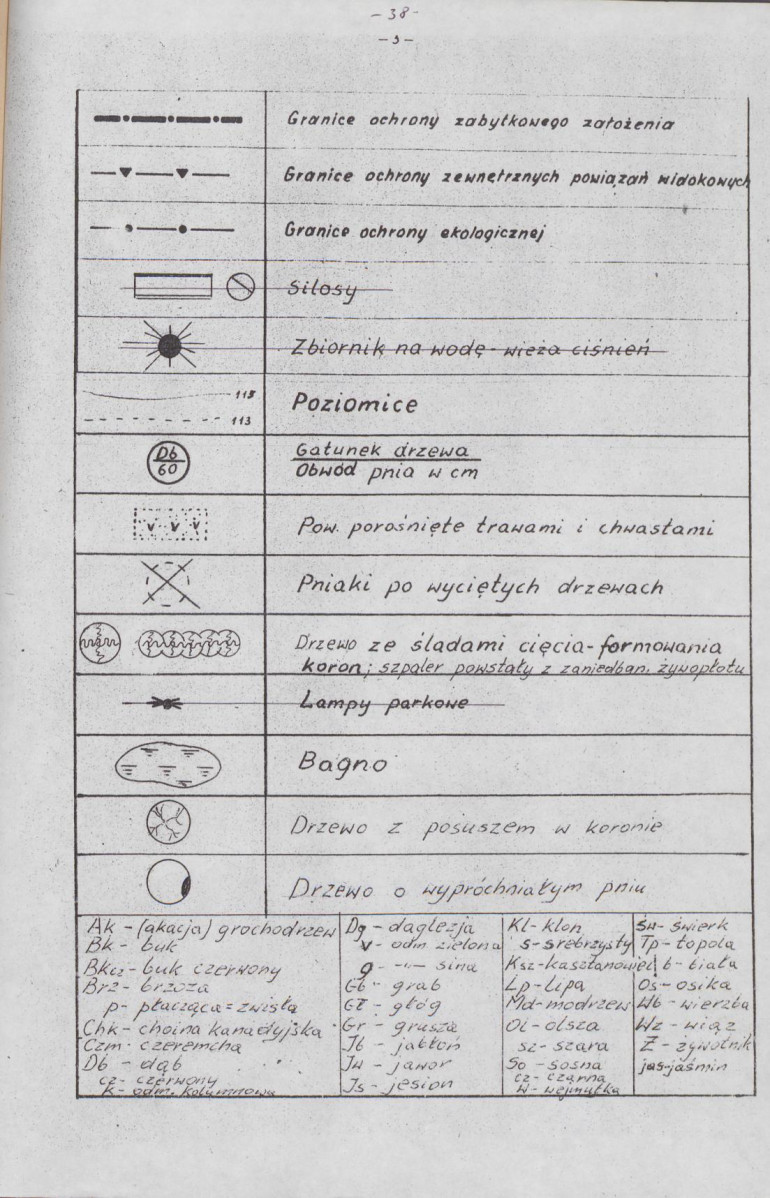 - 38 -
- 3 -
Granice ochrony zabytkowego założenia
Granice ochrony zewnętrznych powiązań widokowych
Granice ochrony ekologicznej
Silosy
Zbiornik na wodę - wieża ciśnień
115
113
Poziomice
Db
60
Gatunek drzewa
Obwód pnia w cm
Pow. porośnięte trawami i chwastami
Pniaki po wyciętych drzewach
Drzewo ze śladami cięcia - formowania
koron; szpaler powstały z zaniedban. żywopłotu
Lampy parkowe
Bagno
Drzewo z posuszem w koronie
Drzewo o wypróchniałym pniu
Ak - (akacja) grochodrzew
Bk - buk
Bkcz - buk czerwony
Brz - brzoza
p - płacząca = zwisła
Chk - choina kanadyjska
Czm - czeremcha
Db - dąb
cz - czerwony
k - odm. kolumnowa
Dg - daglezja
v - odm zielona
g - -"- sina
Gb - grab
Gł - głóg
Gr - grusza
Jb - jabłoń
Jw - jawor
Js - jesion
Kl - klon
s - srebrzysty
Ksz - kasztanowiec
Lp - lipa
Md - modrzew
Ol - olsza
sz - szara
So - sosna
cz - czarna
w - wejmutka
Św - świerk
Tp - topola
b - biała
Os - osika
Wb - wierzba
Wz - wiąz
Ż - żywotnik
jaś - jaśmin